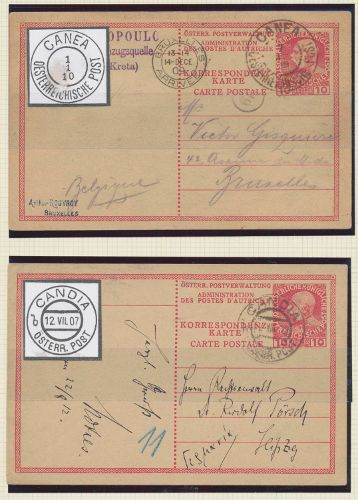 CANEA
1
1
10
OESTERREICHISCHE POST
OPOULO
zugsquelle
(Kreta)
BRUXELLES
13-14
14 DECE
ARRIVEE
CANEA
ÖSTERR. POSTVERWALTUNG
ADMINISTRATION
DES POSTES D'AUTRICHE
KORRESPONDENZ-
KARTE
CARTE POSTALE
10 10
Mr
Victor
42
Bruxelles
Belgique
Arthur ROUVROY
BRUXELLES
CANDIA
12 VII 07
ÖSTERR. POST
ÖSTERR. POSTVERWALTUNG
ADMINISTRATION
DES POSTES D'AUTRICHE
KORRESPONDENZ-
KARTE
CARTE POSTALE
CANDIA
10 10
11
Herrn Rechtsanwalt
Dr. Rudolf Pörsch
Leipzig